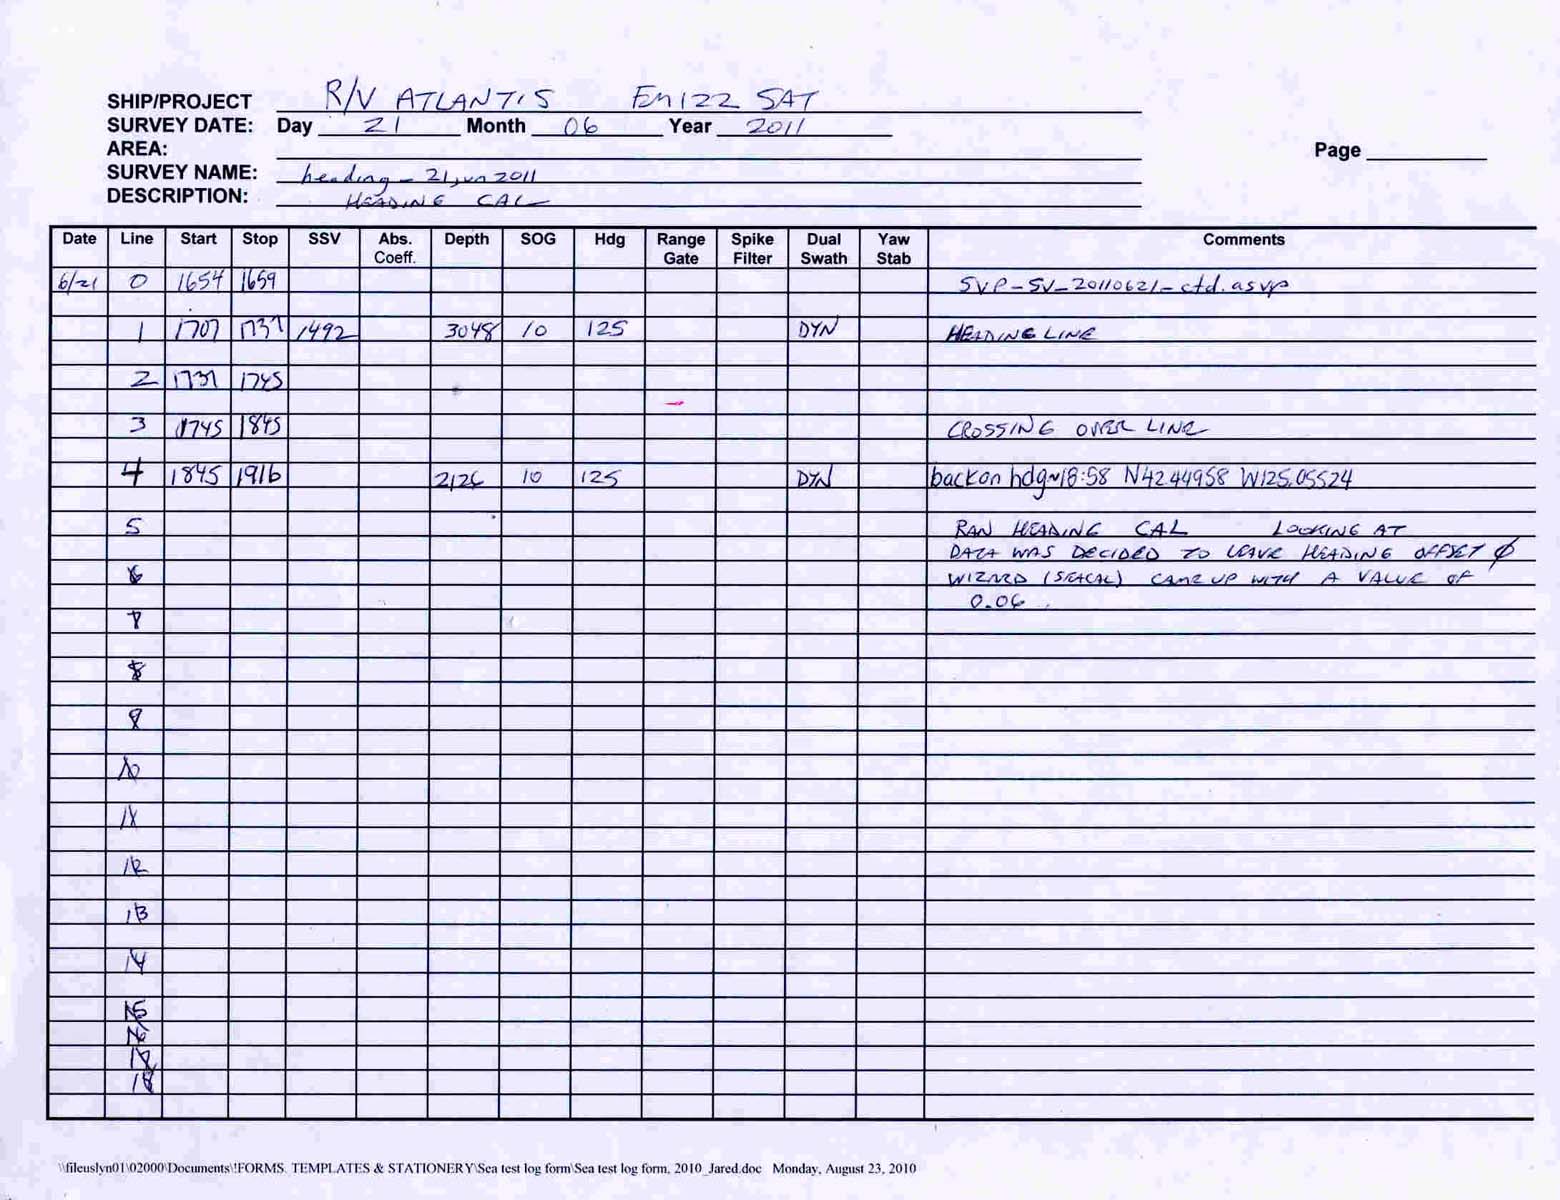 SHIP/PROJECT R/V ATLANTIS EM122 SAT
SURVEY DATE: Day 21 Month 06 Year 2011
AREA:
Page
SURVEY NAME: heading_21jun2011
DESCRIPTION: HEADING CAL
Date Line Start Stop SSV Abs. Coeff. Depth SOG Hdg Range Gate Spike Filter Dual Swath Yaw Stab Comments
6/21 0 1654 1659 SVP-SV_20110621_ctd.asvp
1 1707 1737 1492 3048 10 125 DYN HEADING LINE
2 1737 1745
3 1745 1845 CROSSING OVER LINE
4 1845 1916 2126 10 125 DYN back on hdg~18:58 N42.44958 W125.05524
5 RAN HEADING CAL LOOKING AT
DATA WAS DECIDED TO LEAVE HEADING OFFSET Ø
6 WIZARD (SEACAL) CAME UP WITH A VALUE OF
0.06
7
8
9
10
11
12
13
14
15
16
18
\\fileuslyn01\02000\Documents\!FORMS. TEMPLATES & STATIONERY\Sea test log form\Sea test log form, 2010_Jared.doc Monday, August 23, 2010